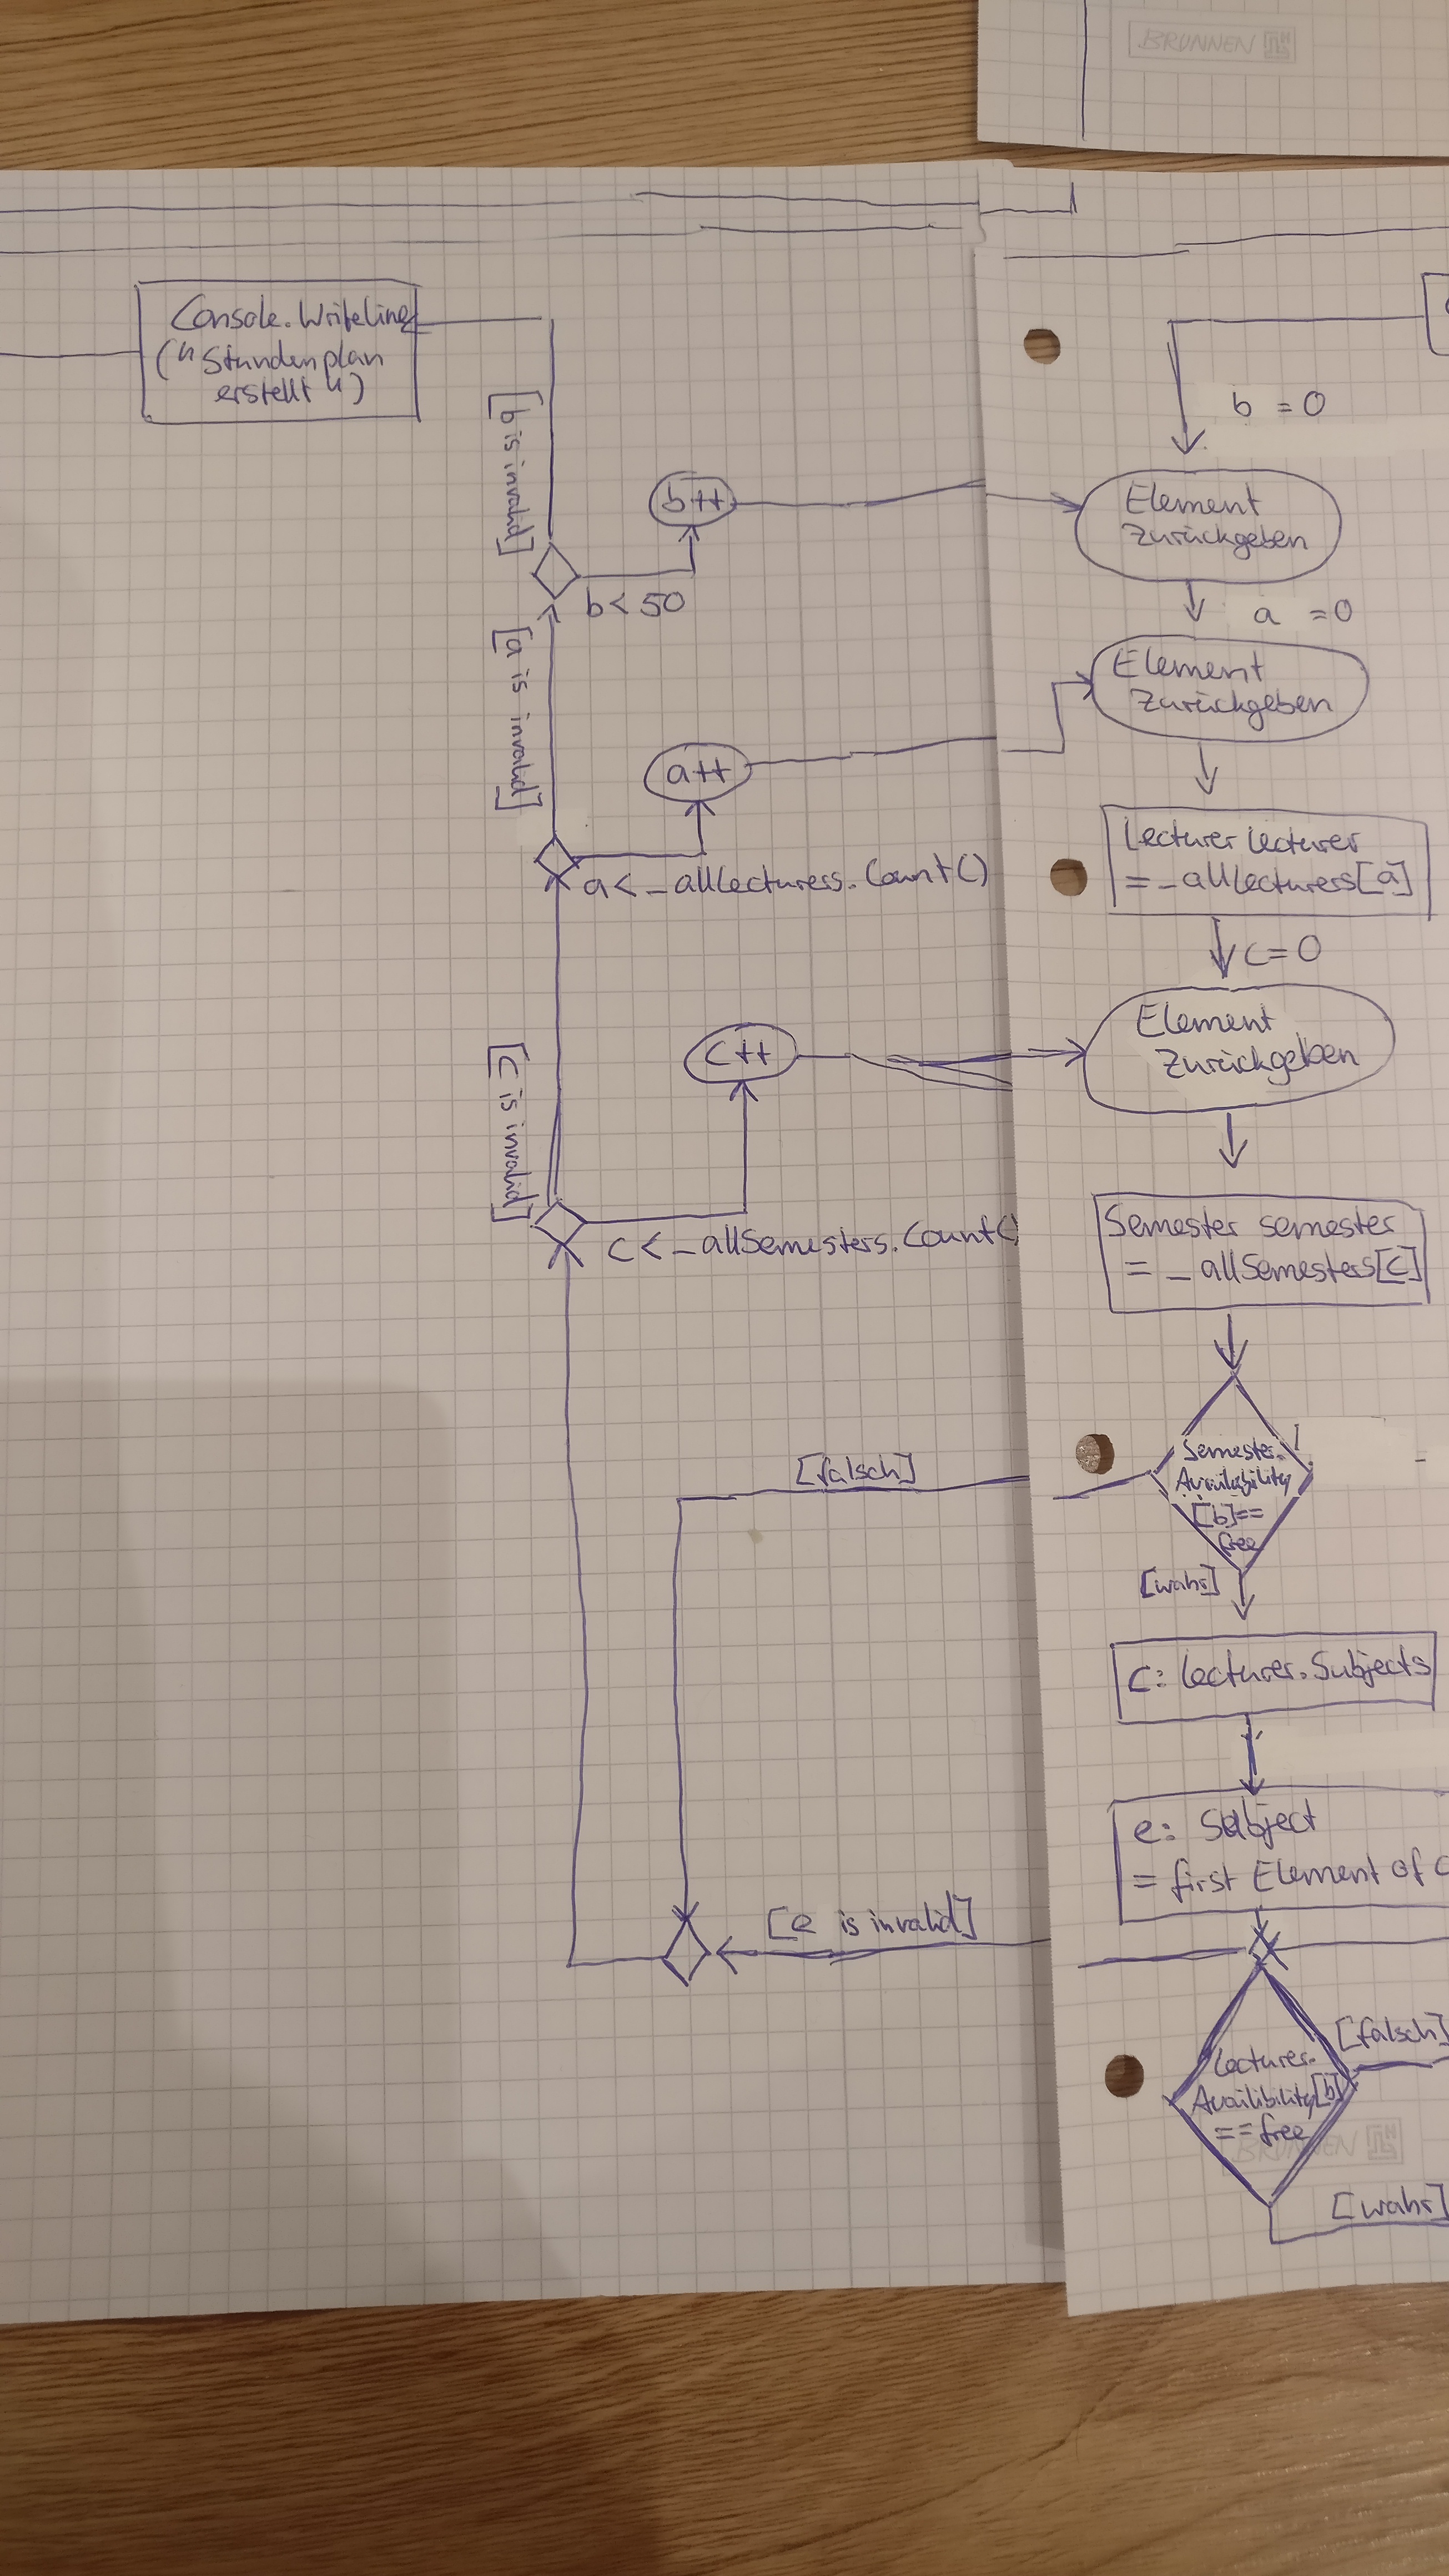 BRUNNEN
Console.WriteLine
("Stundenplan
erstellt")
[b is invalid]
b++
b < 50
[a is invalid]
a++
a < _allLecturess.Count()
[c is invalid]
c++
c < _allSemesters.Count()
[falsch]
[e is invalid]
b = 0
Element
Zurückgeben
a = 0
Element
Zurückgeben
Lecturer lecturer
= _allLecturers[a]
c = 0
Element
Zurückgeben
Semester semester
= _allSemesters[c]
Semester.
Availability
[b] ==
free
[wahr]
c: lecturer.Subjects
e: Subject
= first Element of C
[falsch]
Lecturer.
Availibility[b]
== free
BRUNNEN
[wahr]